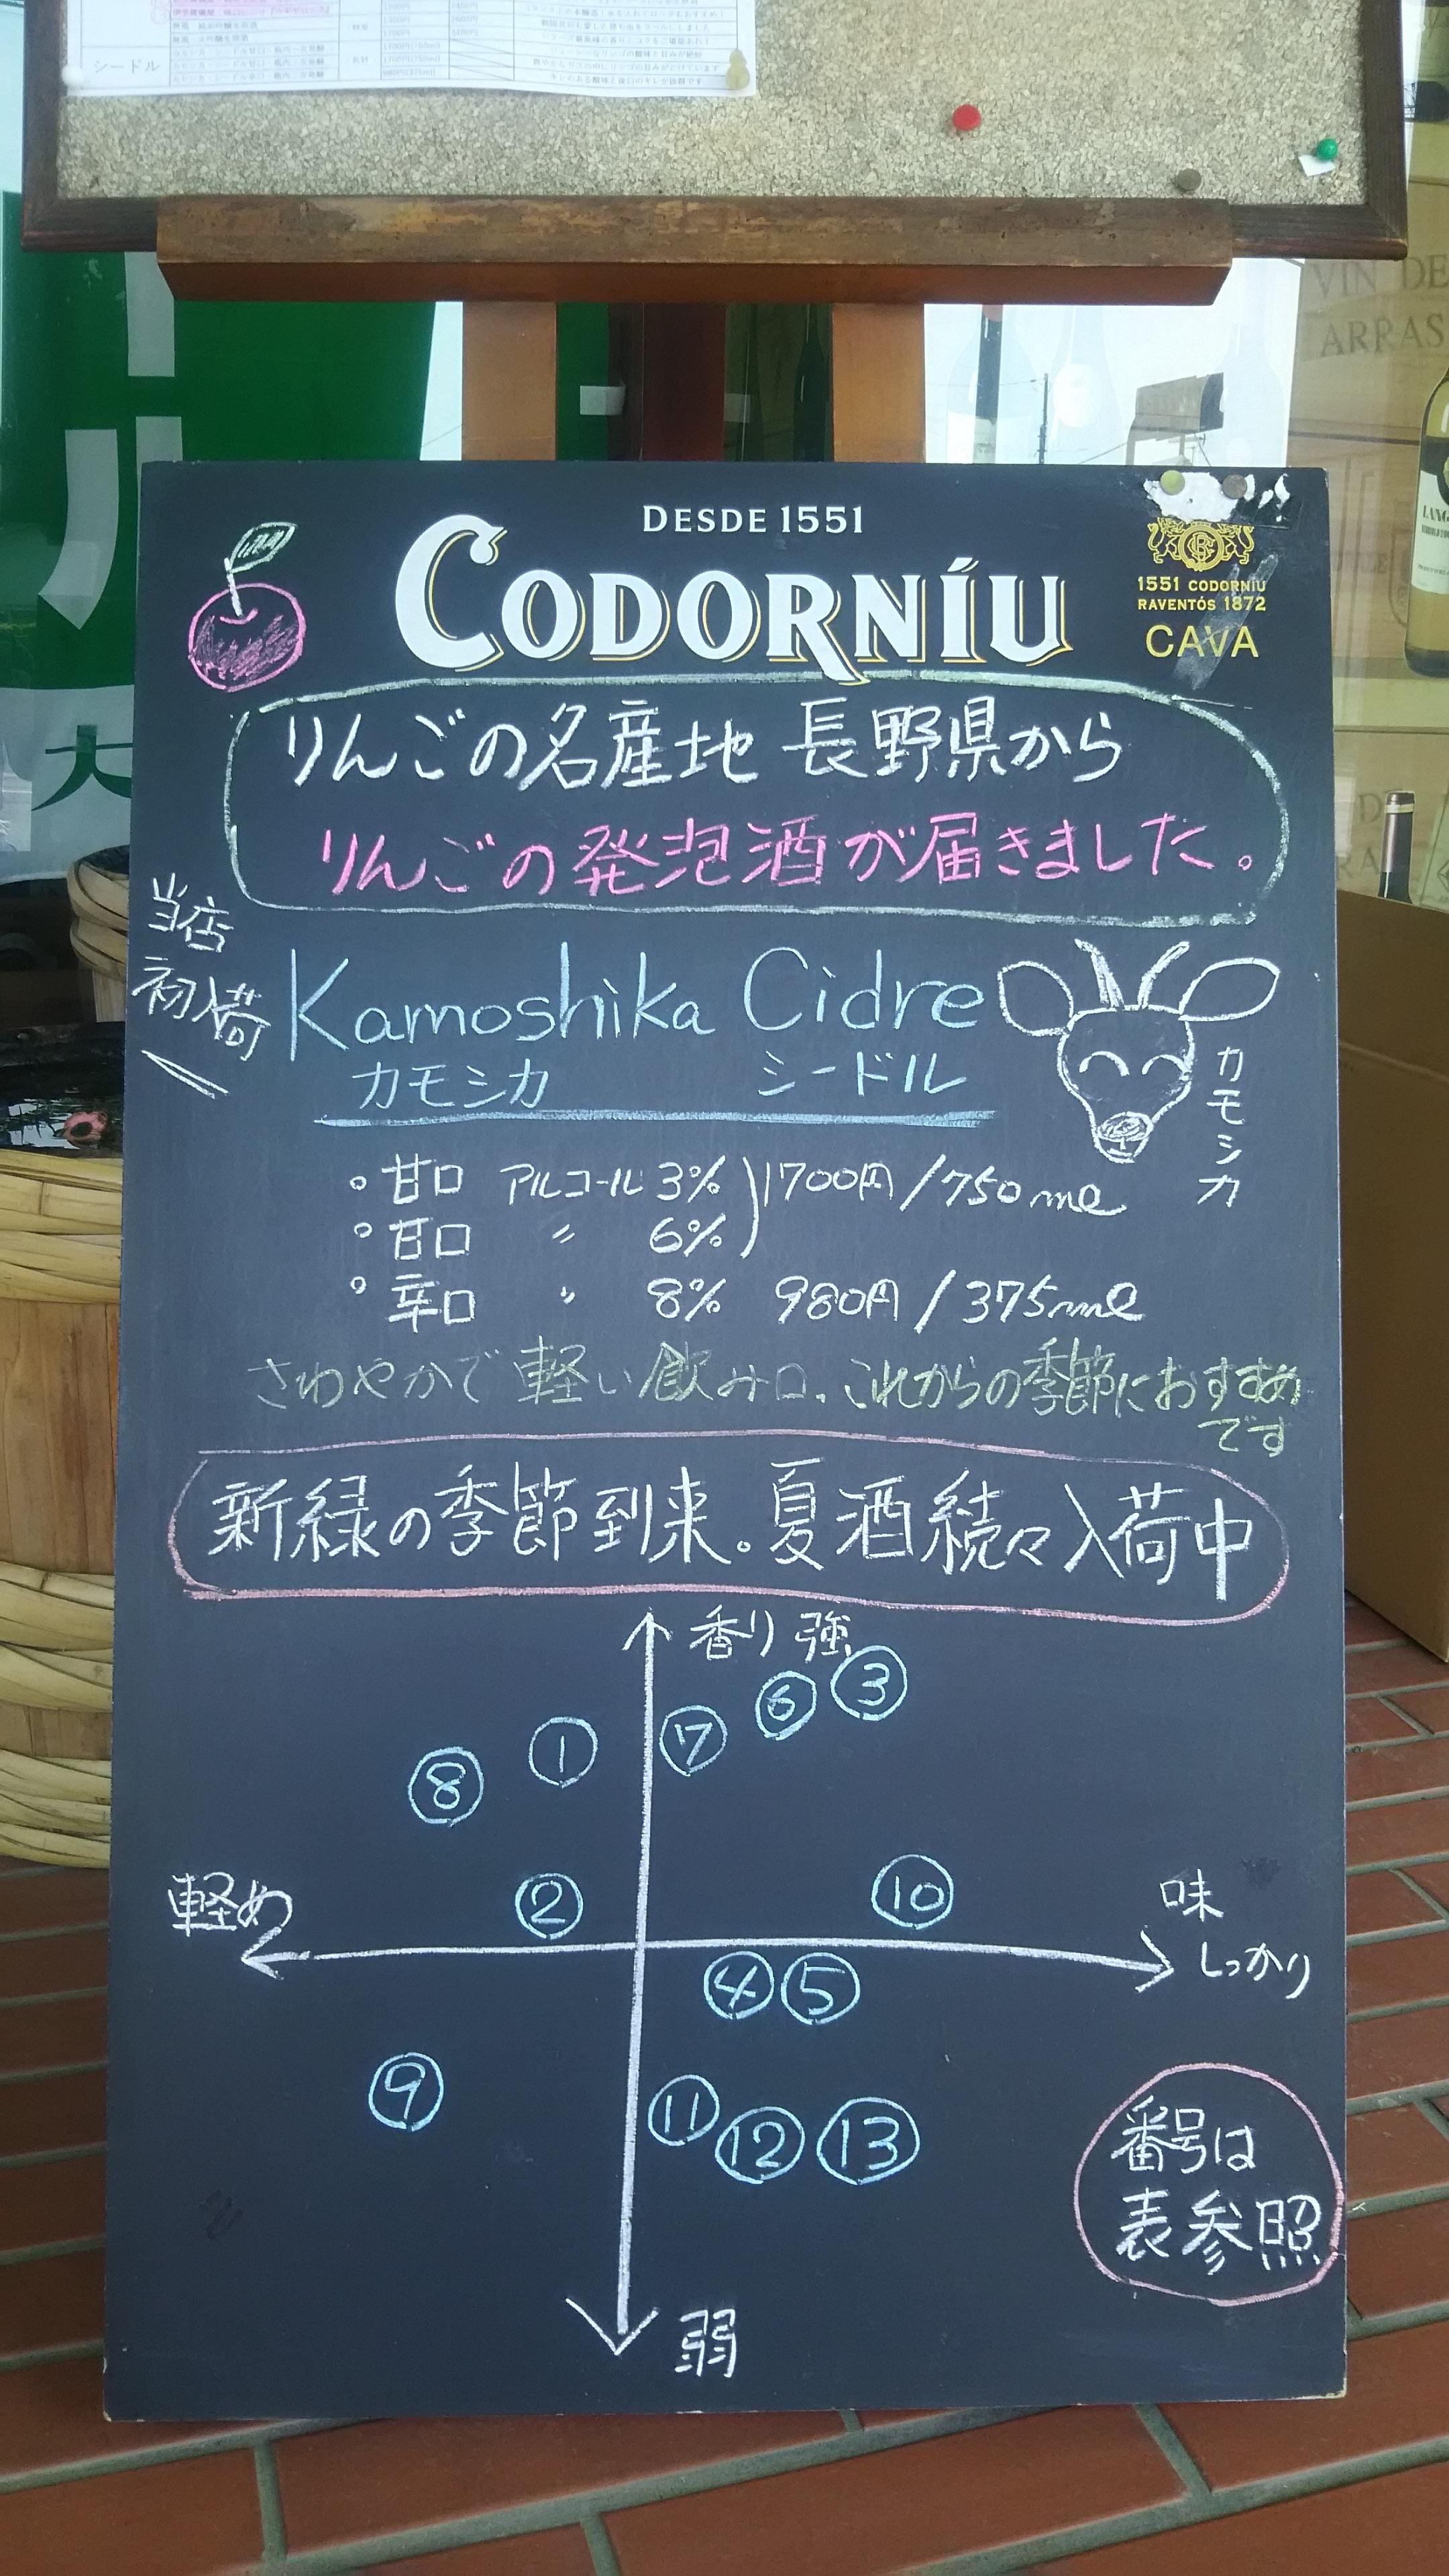 シードル
DESDE 1551
CODORNÍU
1551 CODORNÍU
RAVENTÓS 1872
CAVA
りんごの名産地 長野県から
りんごの発泡酒が届きました。
当店
初入荷
Kamoshika Cidre
カモシカ シードル
カモシカ
。甘口 アルコール 3%
。甘口 〃 6%
1700円/750ml
。辛口 〃 8% 980円/375ml
さわやかで軽い飲み口、これからの季節におすすめ
です
新緑の季節到来。夏酒続々入荷中
香り 強
③
⑥
⑦
①
⑧
②
⑩
軽め
味
しっかり
④⑤
⑨
⑪
⑫
⑬
番号は
表参照
弱
VIN DE
ARRAS
LANG